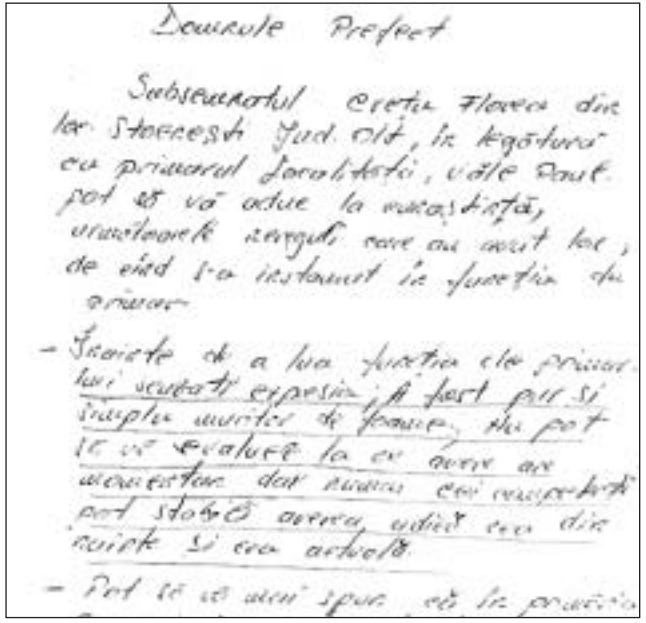 Domnule Prefect
Subsemnatul Crețu Florea din
loc. Stoenești Jud. Olt, în legătură
cu primarul localității, Vâle Paul.
pot să vă aduc la cunoștință,
următoarele nereguli care au avut loc,
de cînd s-a instaurat în funcția de
primar
- Înainte de a lua funcția de primar
lui scuzați expresia; A fost pur si
simplu muritor de foame, Nu pot
să vă evaluez la ce avere are
momentan dar numai cei competenți
pot stabili averea, adică cea din
nainte si cea actuală.
- Pot să vă mai spun că în primăria